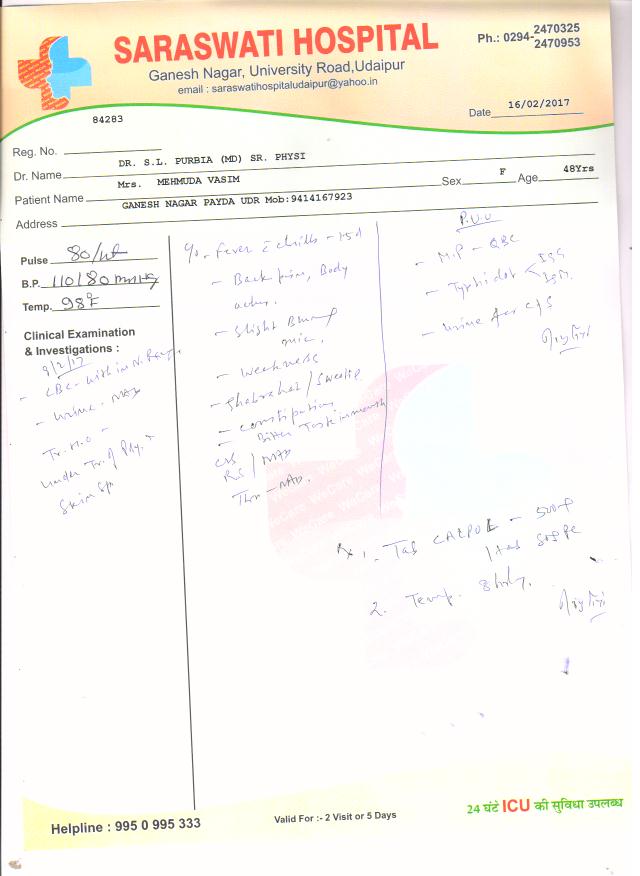 SARASWATI HOSPITAL
Ganesh Nagar, University Road,Udaipur
email : saraswathispitaludaipur@yahoo.in
Ph.: 0294- 2470325
2470953
84283
Date 16/02/2017
Reg. No.
Dr. Name DR. S.L. PURBIA (MD) SR. PHYSI
Patient Name Mrs. MEHMUDA VASIM
Sex F Age 48Yrs
Address GANESH NAGAR PAYDA UDR Mob:9414167923
Pulse 80/
B.P. 110/80 mmHg
Temp. 98°F
Clinical Examination
& Investigations :
9/2/17
- CBC - within N.
- Urine - NAD
Tr. H.O -
Under Tr. of Phy. +
Skin Sp
Fever c chills - 15d
- Back pain, Body
aches.
- Slight Burning
mic.
- Weakness
- Ghabrahat /
- Constipation
- Bitter Taste in mouth
CVS
RS / NAD
- NAD.
P.U.O
- M.P - QBC
- Typhidot < IgG
IgM.
- Urine for C/S
Rx 1. Tab CALPOL - 500
1 tab SOS
2. Temp. 8 hrly.
WeCare
24 घंटे ICU की सुविधा उपलब्ध
Helpline : 995 0 995 333
Valid For :- 2 Visit or 5 Days